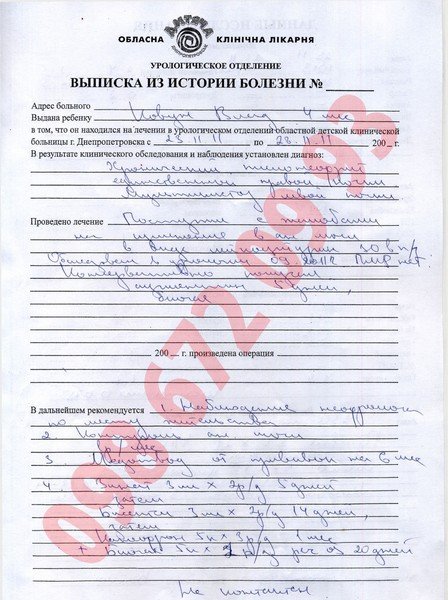 ДИТЯЧА
ОБЛАСНА КЛІНІЧНА ЛІКАРНЯ
УРОЛОГИЧЕСКОЕ ОТДЕЛЕНИЕ
ВЫПИСКА ИЗ ИСТОРИИ БОЛЕЗНИ №
Адрес больного
Выдана ребенку Ковтун Влад 4 мес
в том, что он находился на лечении в урологическом отделении областной детской клинической
больницы г. Днепропетровска с 23.11.11 по 28.11.11 200 г.
В результате клинического обследования и наблюдения установлен диагноз:
Хронический пиелонефрит
единственной правой почки
левой почки.
Проведено лечение Поступил с жалобами
на изменение в ан. мочи
в виде лейкоцитурии 30 в п/з
Обследован в урологии 09.2011г ПМР нет
Консервативно получал
5 дней,
биогая
200 г. произведена операция
В дальнейшем рекомендуется 1. Наблюдение нефролога
по месту жительства
2. Контроль ан. мочи
1 р/мес
3. Медотвод от прививок на 6 мес
4. 3 мл х 2р/д 5 дней
затем
3 мл х 2р/д 14 дней,
затем
Канефрон 5к х 3р/д 1 мес
+ 5к х 2 р/д 20 дней
098 672 0993